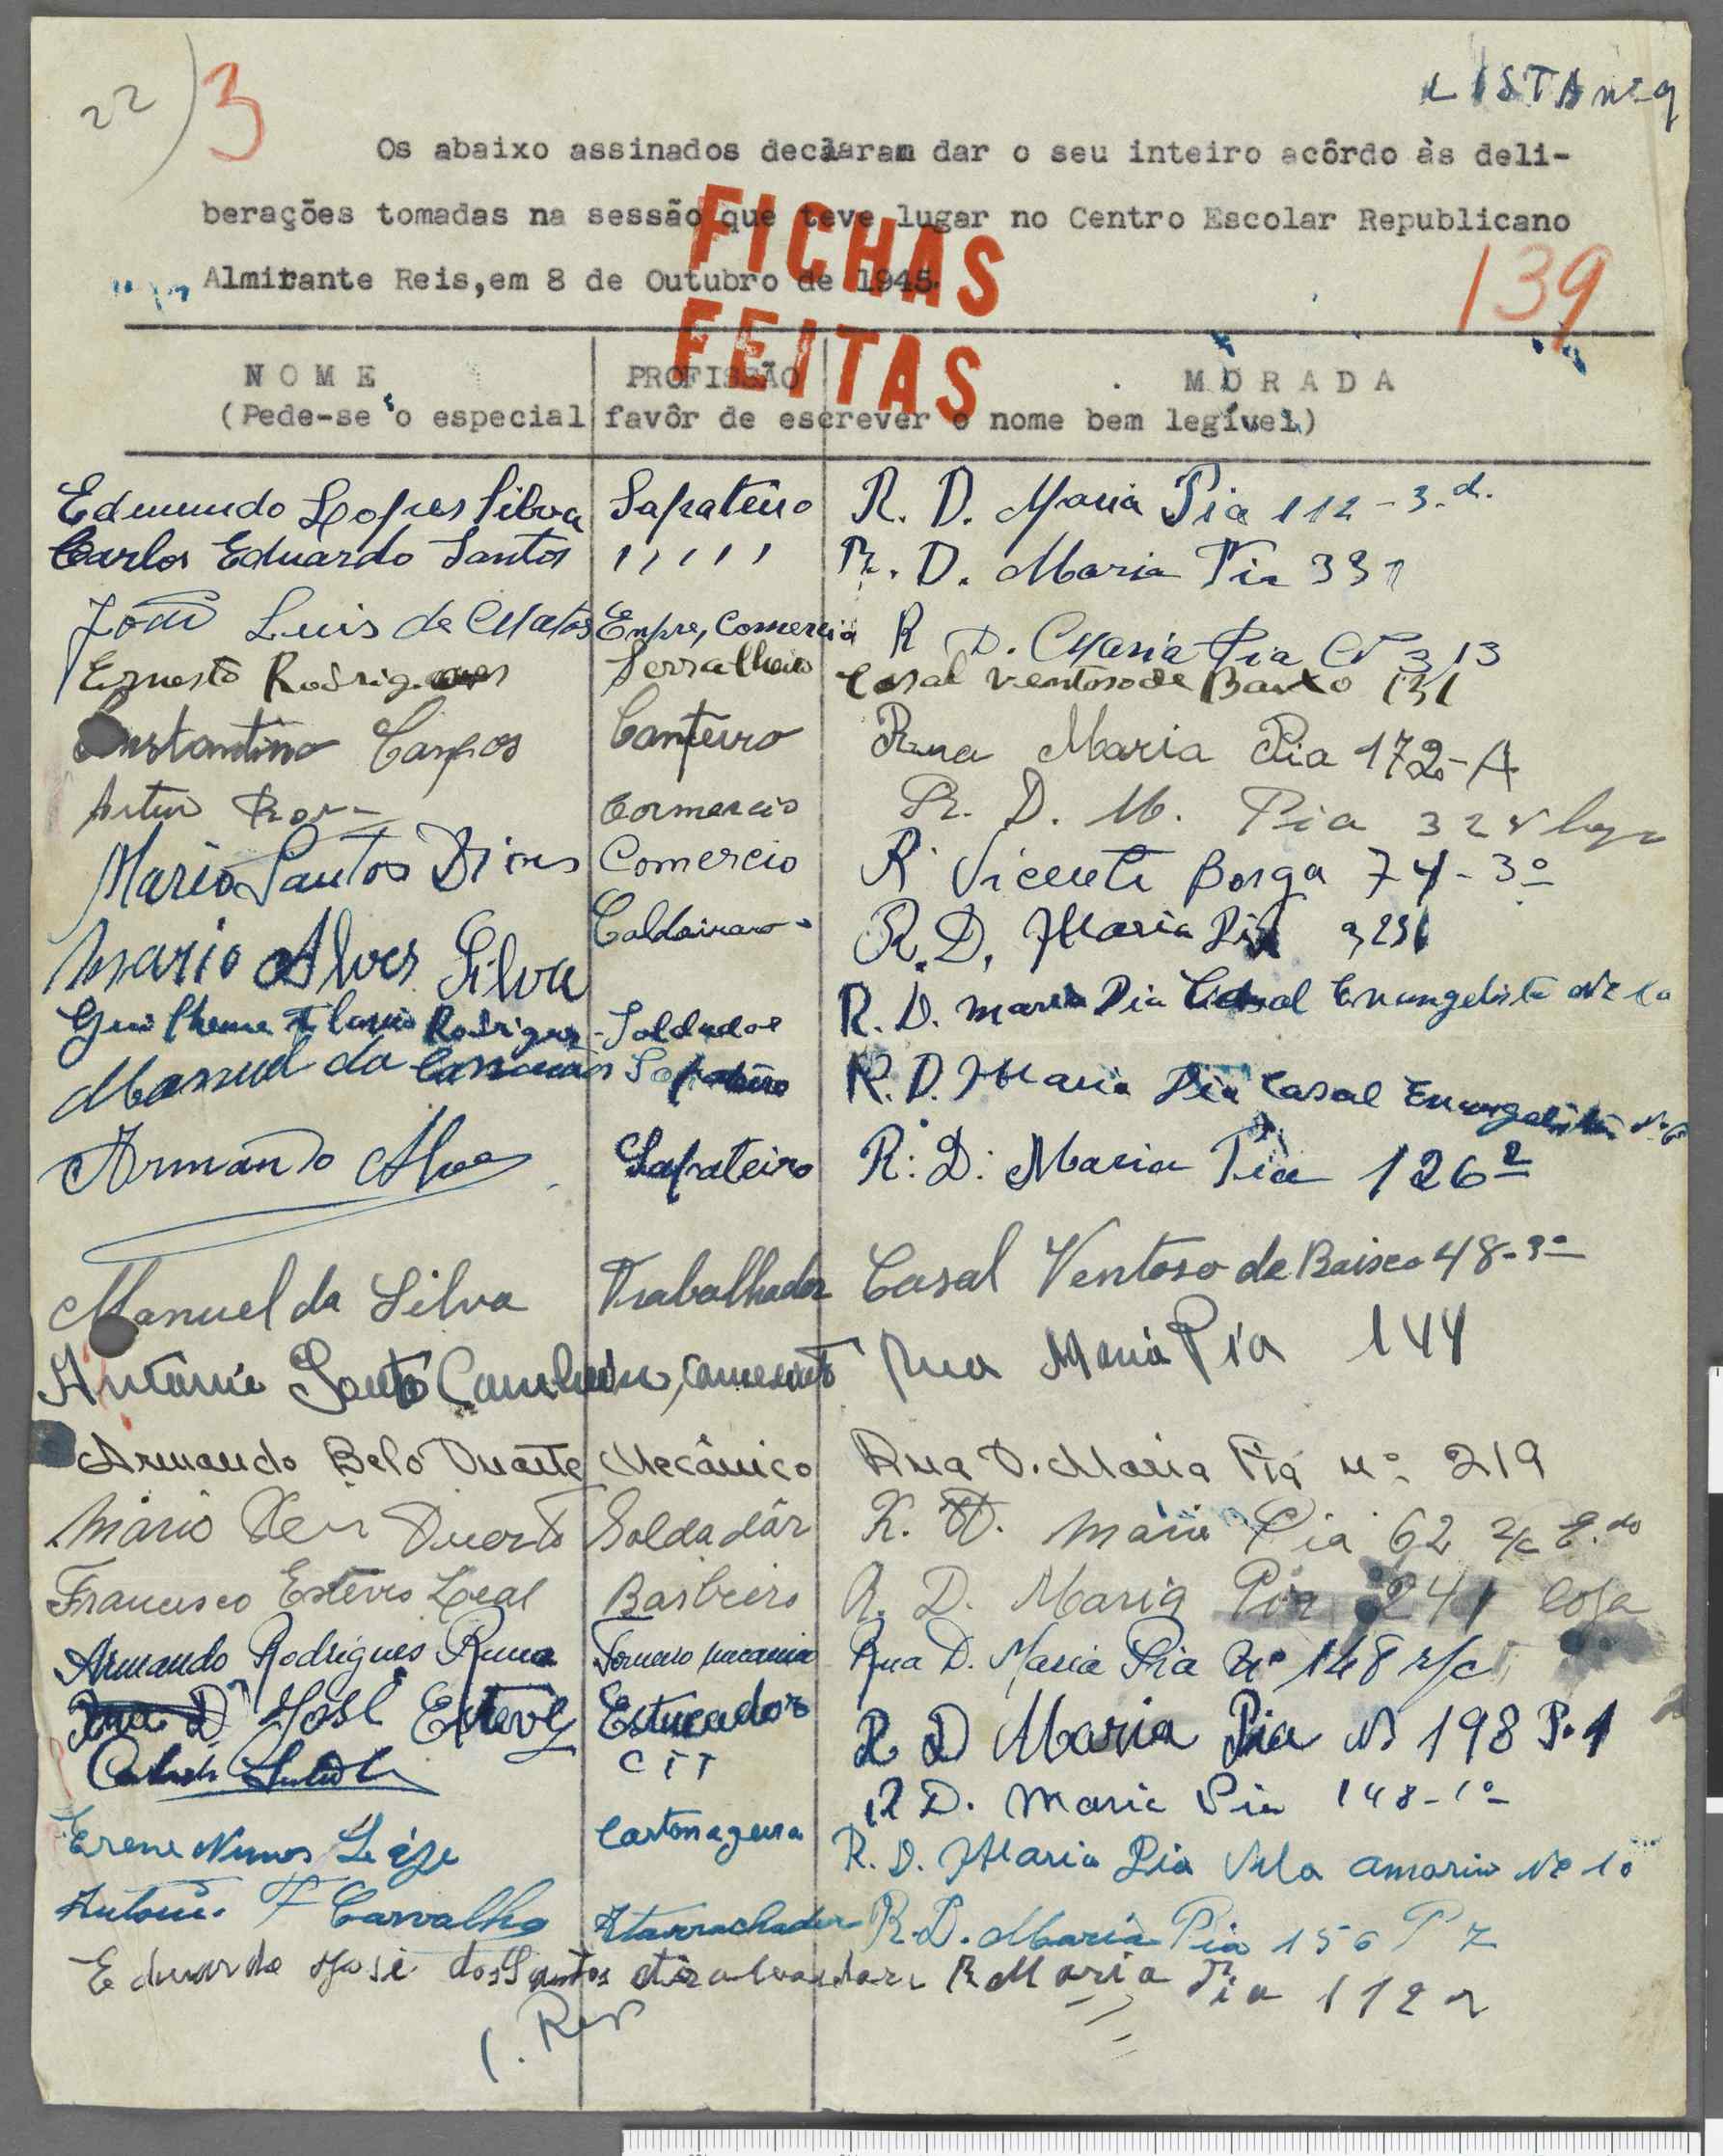 22) 3
LISTA nº 9
Os abaixo assinados declaram dar o seu inteiro acôrdo às deli-
berações tomadas na sessão que teve lugar no Centro Escolar Republicano
Almirante Reis,em 8 de Outubro de 1945.
FICHAS
FEITAS
139
NOME PROFISSÃO MORADA
(Pede-se o especial favôr de escrever o nome bem legível)
Edmundo Lopes Silva Sapateiro R. D. Maria Pia 112-3.d.
Carlos Eduardo Santos ,,,,, R. D. Maria Pia 331
João Luis de Matos Empre, Comercia R D. Maria Pia Nº 313
Ernesto Rodrigues Serralheiro Casal ventoso de Baixo 131
Constantino Campos Canteiro Rua Maria Pia 172-A
Artur Comercio R. D. M. Pia
Mario Santos Dinis Comercio R. Vicente Borga 74-3º
Mario Alves Silva Caldeirero R. D. Maria Pia
Guilherme Rodrigues - Soldador R. D. maria Pia Casal Evangelista Nº 10
Manuel da Sapateiro R. D. Maria Pia Casal Evangelista
Armando Alves Sapateiro R. D. Maria Pia 126
Manuel da Silva Trabalhador Casal Ventoso de Baixo 48-3º
Antonio Rua Maria Pia 144
Armando Belo Duarte Mecânico Rua D. Maria Pia nº 219
Mário Duarte Soldadôr R. D. Maria Pia 62 r/c E.do
Francisco Esteves Leal Barbeiro R. D. Maria Pia 241 loja
Armando Rodrigues Torneiro mecanico Rua D. Maria Pia nº 148 r/c
José Esteves Estucador R D Maria Pia Nº 198 P. 1
CTT R D. Maria Pia 148-1º
Erene Nunes Cartonageira R. D. Maria Pia Vila amorim Nº 10
Antonio F Carvalho Atarrachador R. D. Maria Pia 156 P 7
Eduardo José dos Santos R Maria Pia 112